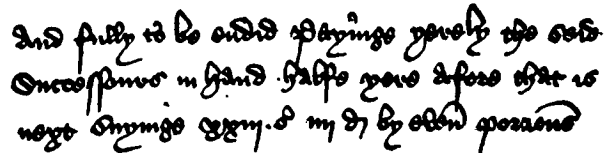 And fully to be endid Payinge yerely the seid
Successours in hand halfe yere afore that is
next Suyinge xxiii.s iiii d by even porcions